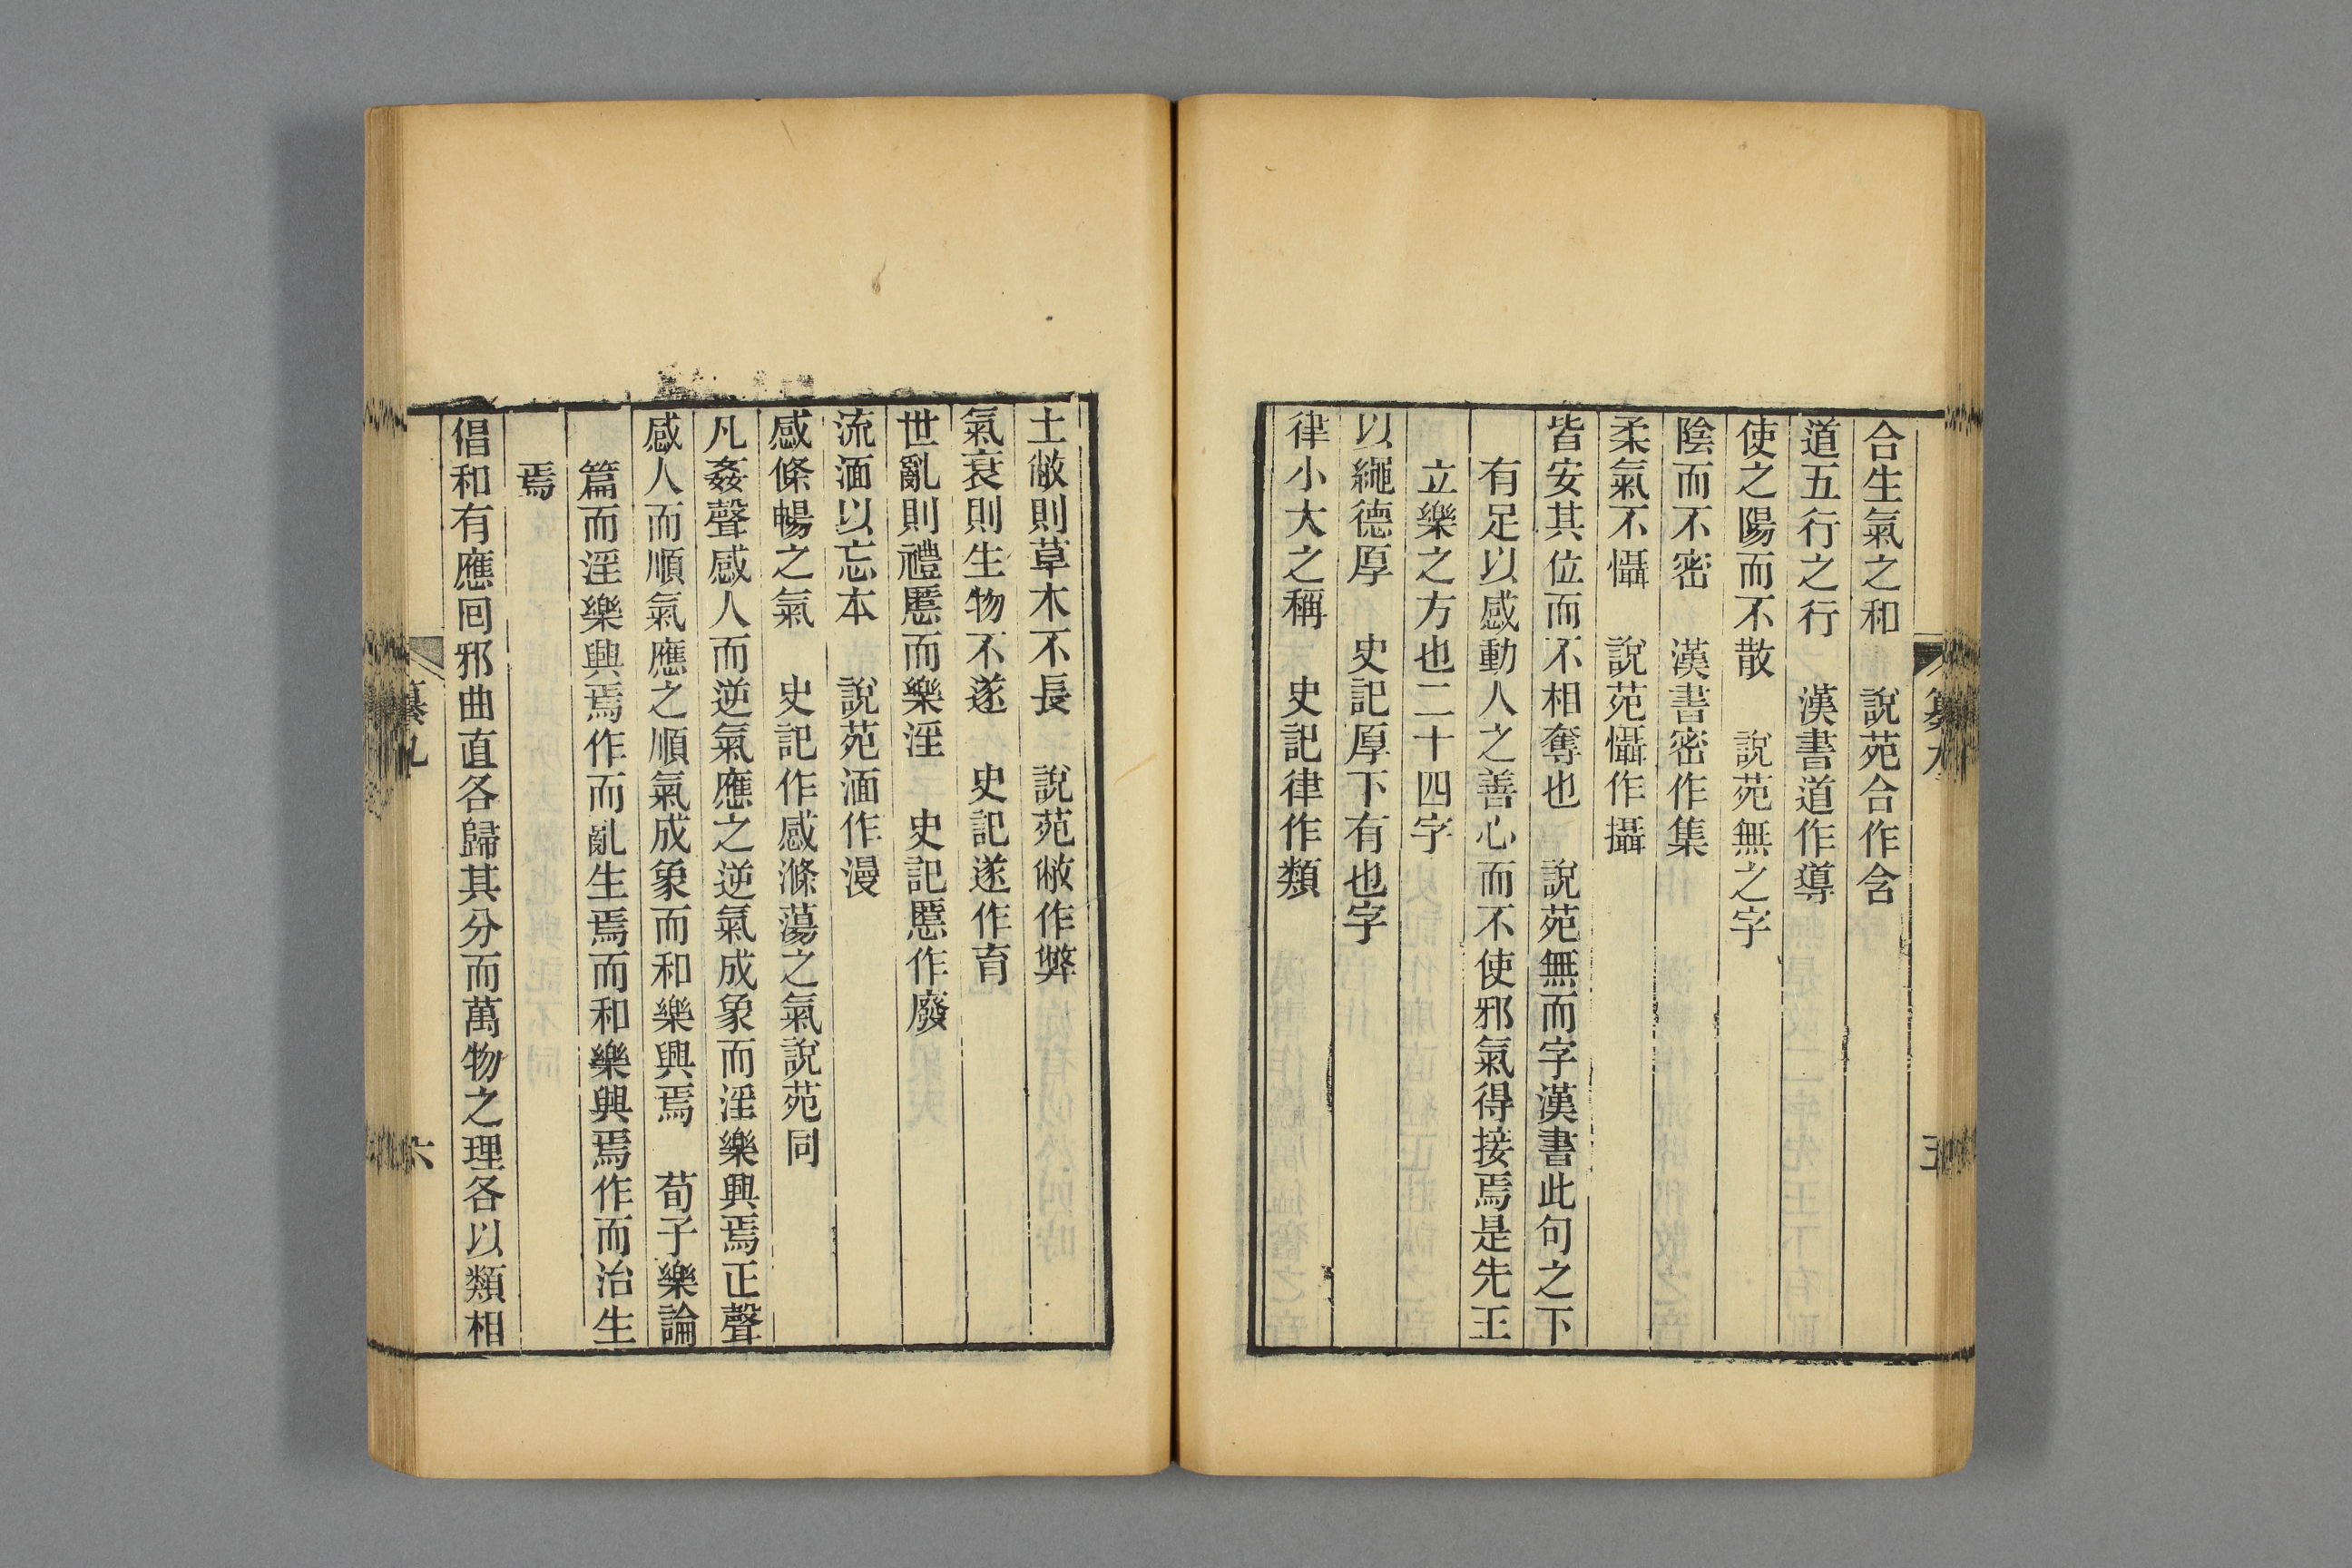 合生氣之和　說苑合作含
道五行之行　漢書道作導
使之陽而不散　說苑無之字
陰而不密　漢書密作集
柔氣不懾　說苑懾作攝
皆安其位而不相奪也　說苑無而字漢書此句之下
有足以感動人之善心而不使邪氣得接焉是先王
立樂之方也二十四字
以繩德厚　史記厚下有也字
律小大之稱　史記律作類
土敝則草木不長　說苑敝作弊
氣衰則生物不遂　史記遂作育
世亂則禮慝而樂淫　史記慝作廢
流湎以忘本　說苑湎作漫
感條暢之氣　史記作感滌蕩之氣說苑同
凡姦聲感人而逆氣應之逆氣成象而淫樂興焉正聲
感人而順氣應之順氣成象而和樂興焉　荀子樂論
篇而淫樂興焉作而亂生焉而和樂興焉作而治生
焉
倡和有應囘邪曲直各歸其分而萬物之理各以類相
纂九
六